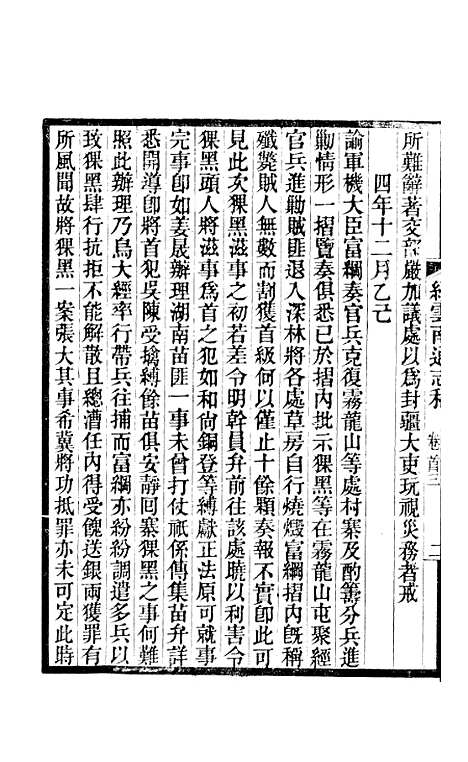 所難辭著交部嚴加議處以為封疆大吏玩視災務者戒
四年十二月乙已
諭軍機大臣富綱奏官兵克復霧龍山等處村寨及酌籌分兵進
勦情形一摺覽奏俱悉已於摺內批示猓黑等在霧龍山屯聚經
官兵進勦賊匪退入深林將各處草房自行燒燬富綱摺內旣稱
殲斃賊人無數而割獲首級何以僅止十餘顆奏報不實卽此可
見此次猓黑滋事之初若差令明幹員弁前往該處曉以利害令
猓黑頭人將滋事為首之犯如和尚銅登等縛獻正法原可就事
完事卽如姜晟辦理湖南苗匪一事未曾打仗祇係傳集苗弁詳
悉開導卽將吳陳受擒縛餘苗俱安靜回寨猓黑之事何難
照此辦理乃烏大經率行帶兵往捕而富綱亦紛紛調遣多兵以
致猓黑肆行抗拒不能解散且總漕任內得受餽送銀兩獲罪有
所風聞故將猓黑一案張大其事希冀將功抵罪亦未可定此時
續雲南通志稿 卷首三 二